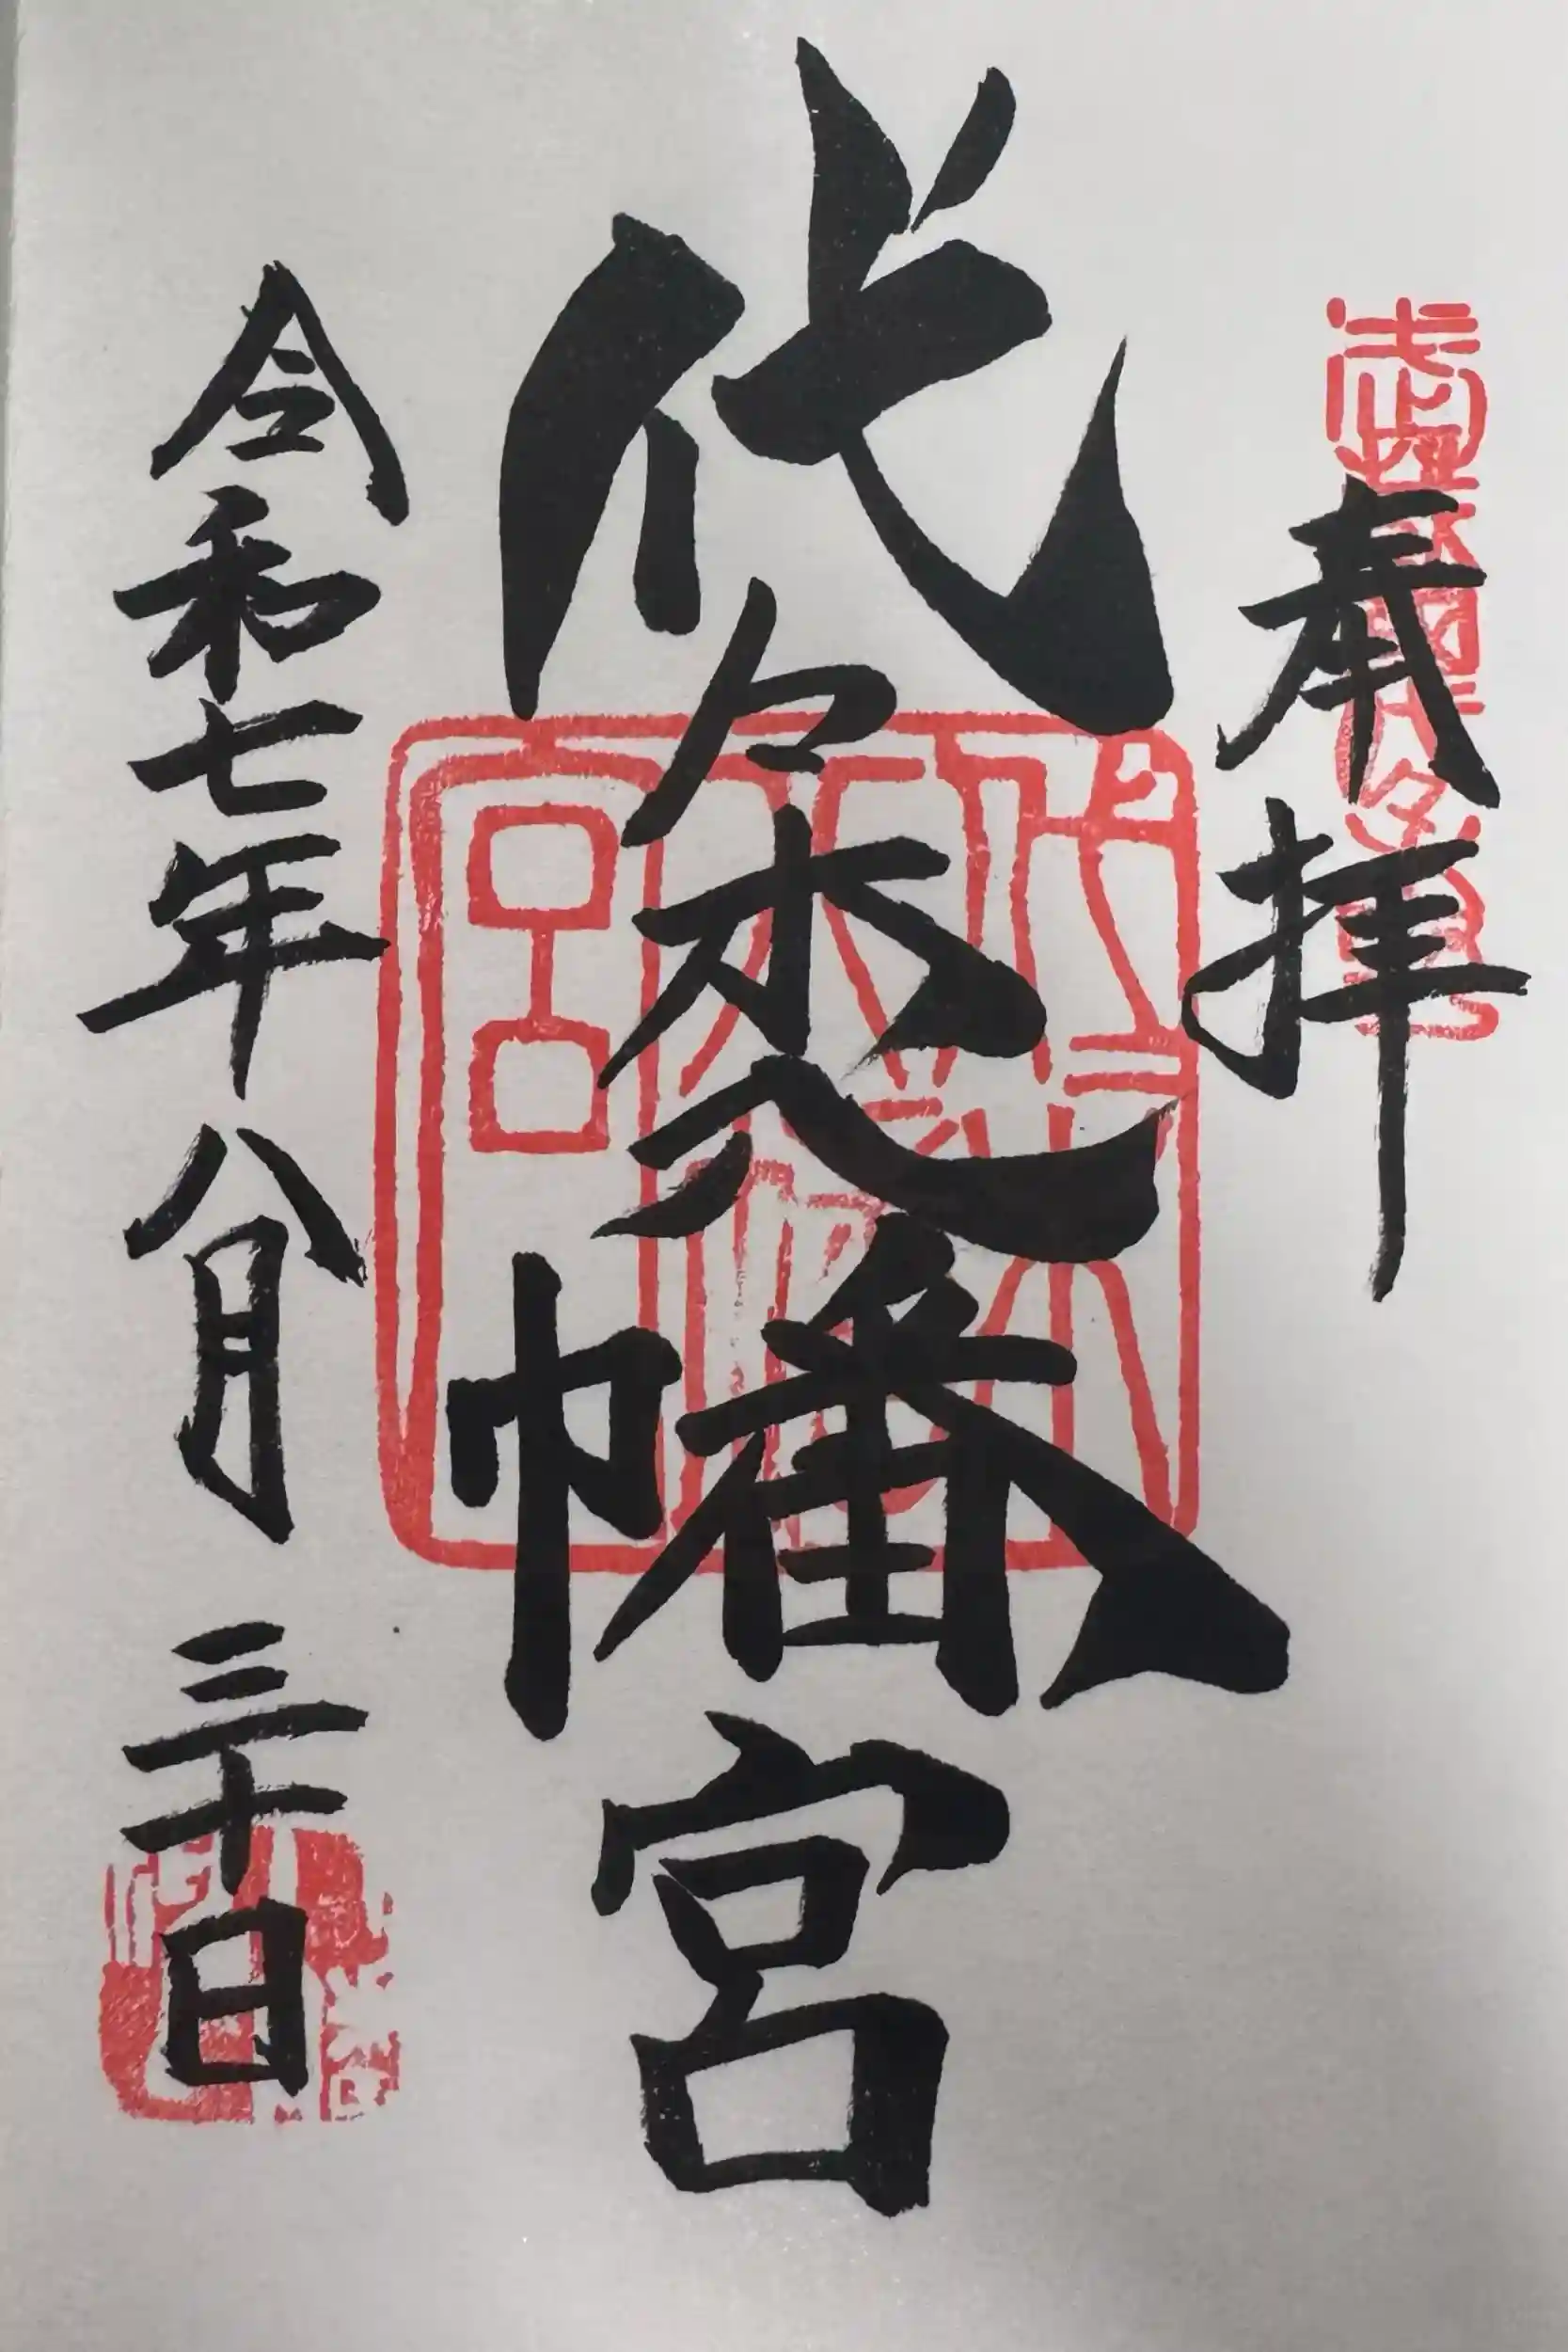 奉拝
代々木八幡宮
令和七年八月三十日